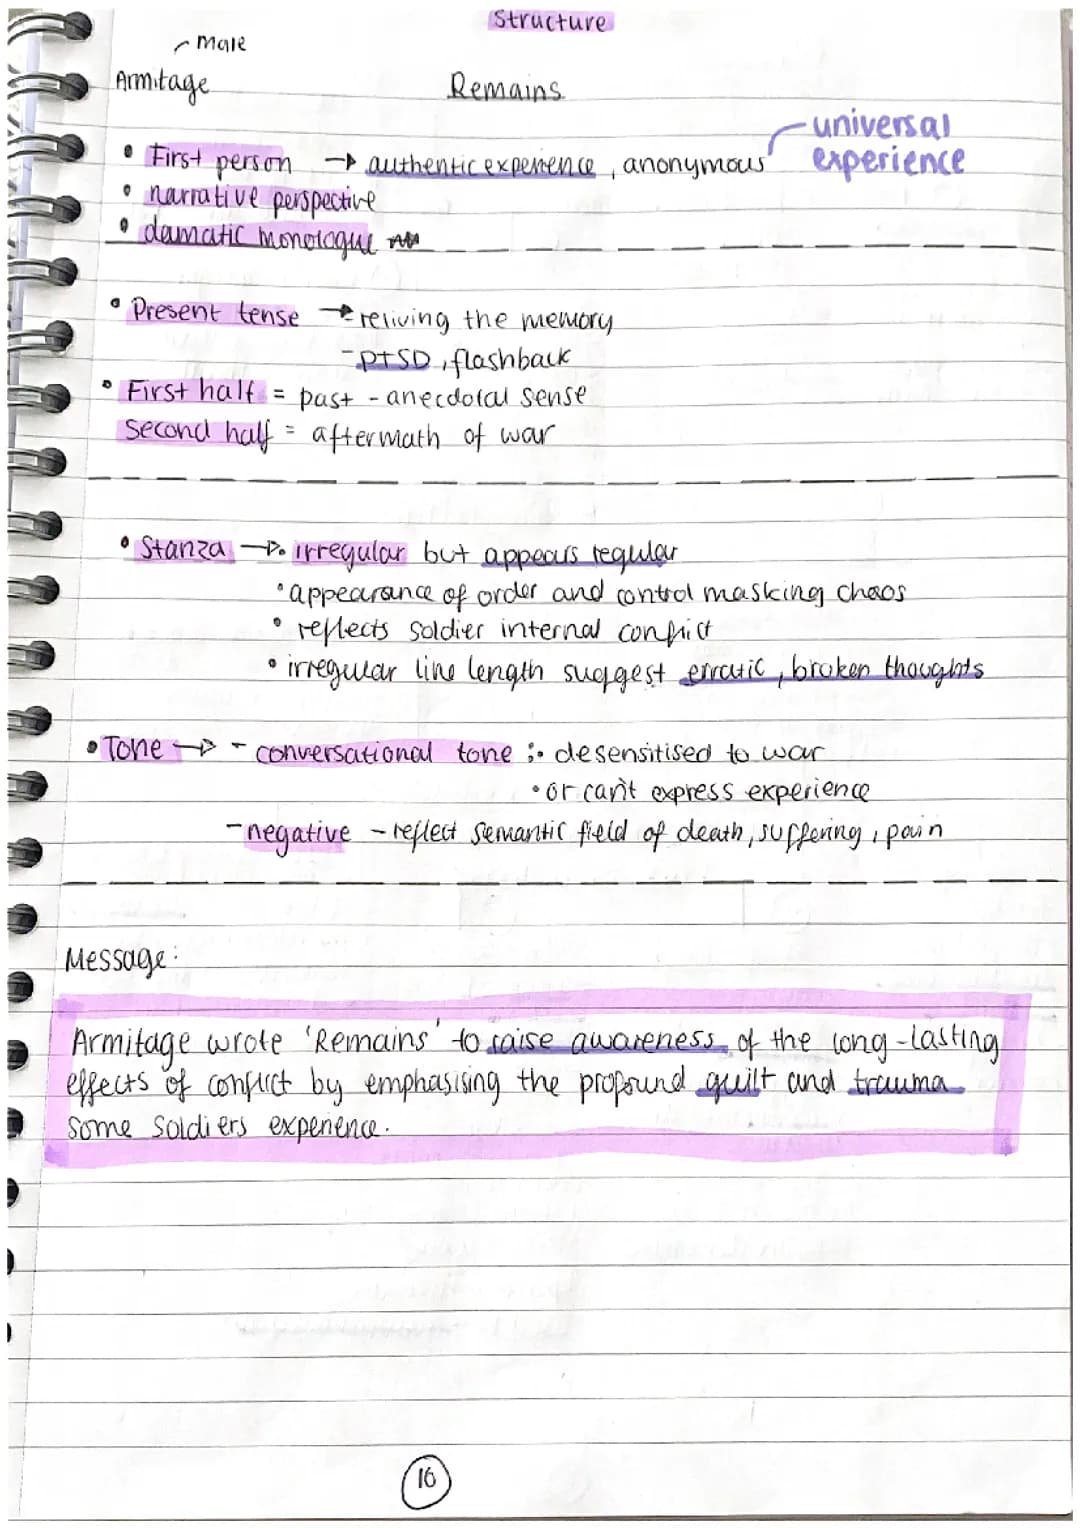 Structure
male
Armitage Remains
• First person → authentic experience, anonymous universal experience
• narrative perspective
• damatic monologue
• Present tense → reliving the memory
- PTSD, flashback
• First half = past - anecdotal sense
Second half = aftermath of war
• Stanza → • irregular but appears regular
• appearance of order and control masking chaos
• reflects soldier internal conflict
• irregular line length suggest erratic, broken thoughts
• Tone → - conversational tone :• desensitised to war
• or can't express experience
- negative - reflect semantic field of death, suffering, pain
Message:
Armitage wrote 'Remains' to raise awareness of the long-lasting
effects of conflict by emphasising the profound guilt and trauma
some soldiers experience.
16